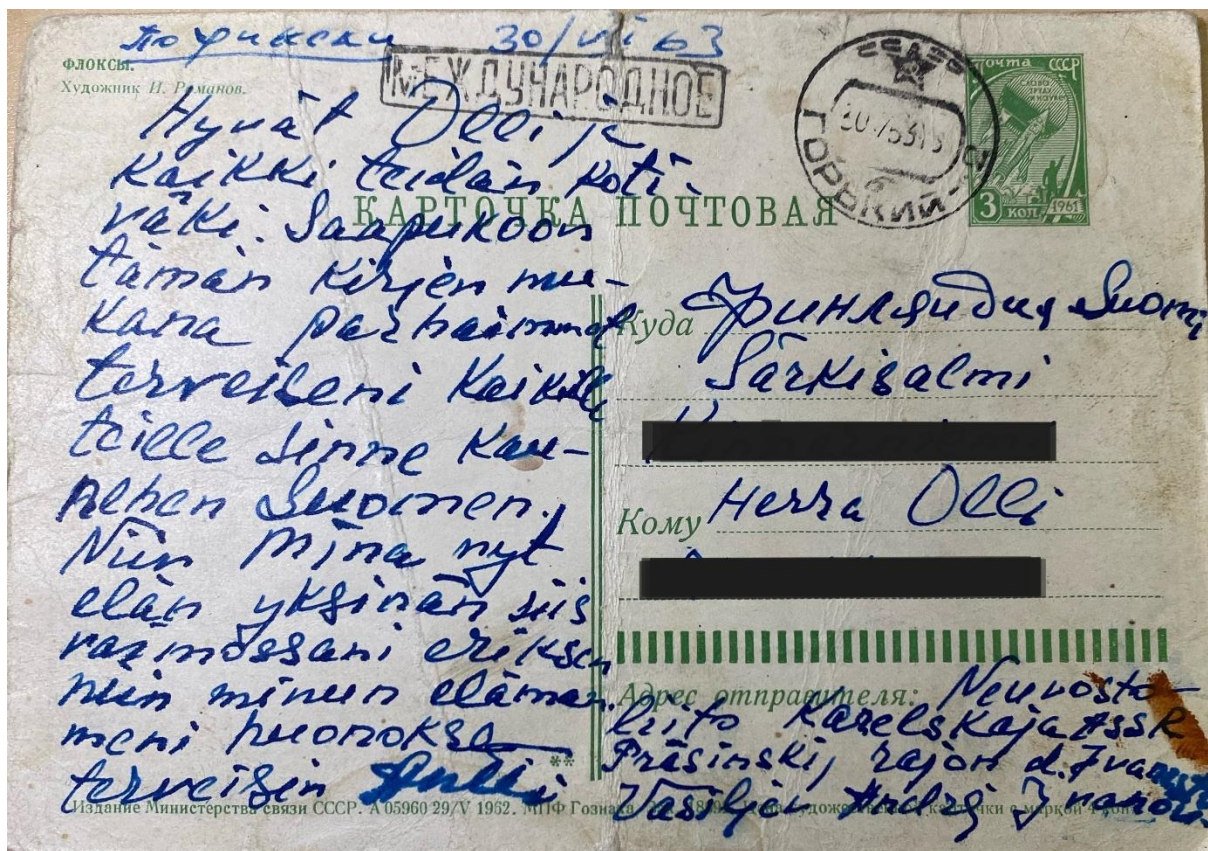 По фински 30/VI 63
ФЛОКСЫ.
Художник И. Романов.
МЕЖДУНАРОДНОЕ
ГОРЬКИЙ
ПОЧТА СССР
3 КОП. 1961
КАРТОЧКА ПОЧТОВАЯ
Hyvät Olli ja
Kaikki teidän koti-
väki. Saapukoon
tämän Kirjen mu-
Kana parhaimmat
terveiseni Kaikille
teille sinne Kau-
nehen Suomen.
Niin Mina nyt
elän yksinän siis
vaimossani eriksen
niin minun elämän
meni huonoksa
terveisin
Куда Финляндия Suomi
Särkisalmi
Кому Herra Olli
Адрес отправителя: Neuvosto-
liito Karelskaja ASSR
Präsinskij rajon d.
Vasiljev Andrej
Издание Министерства связи СССР. А 05960 29/V 1962. МПФ Гознака